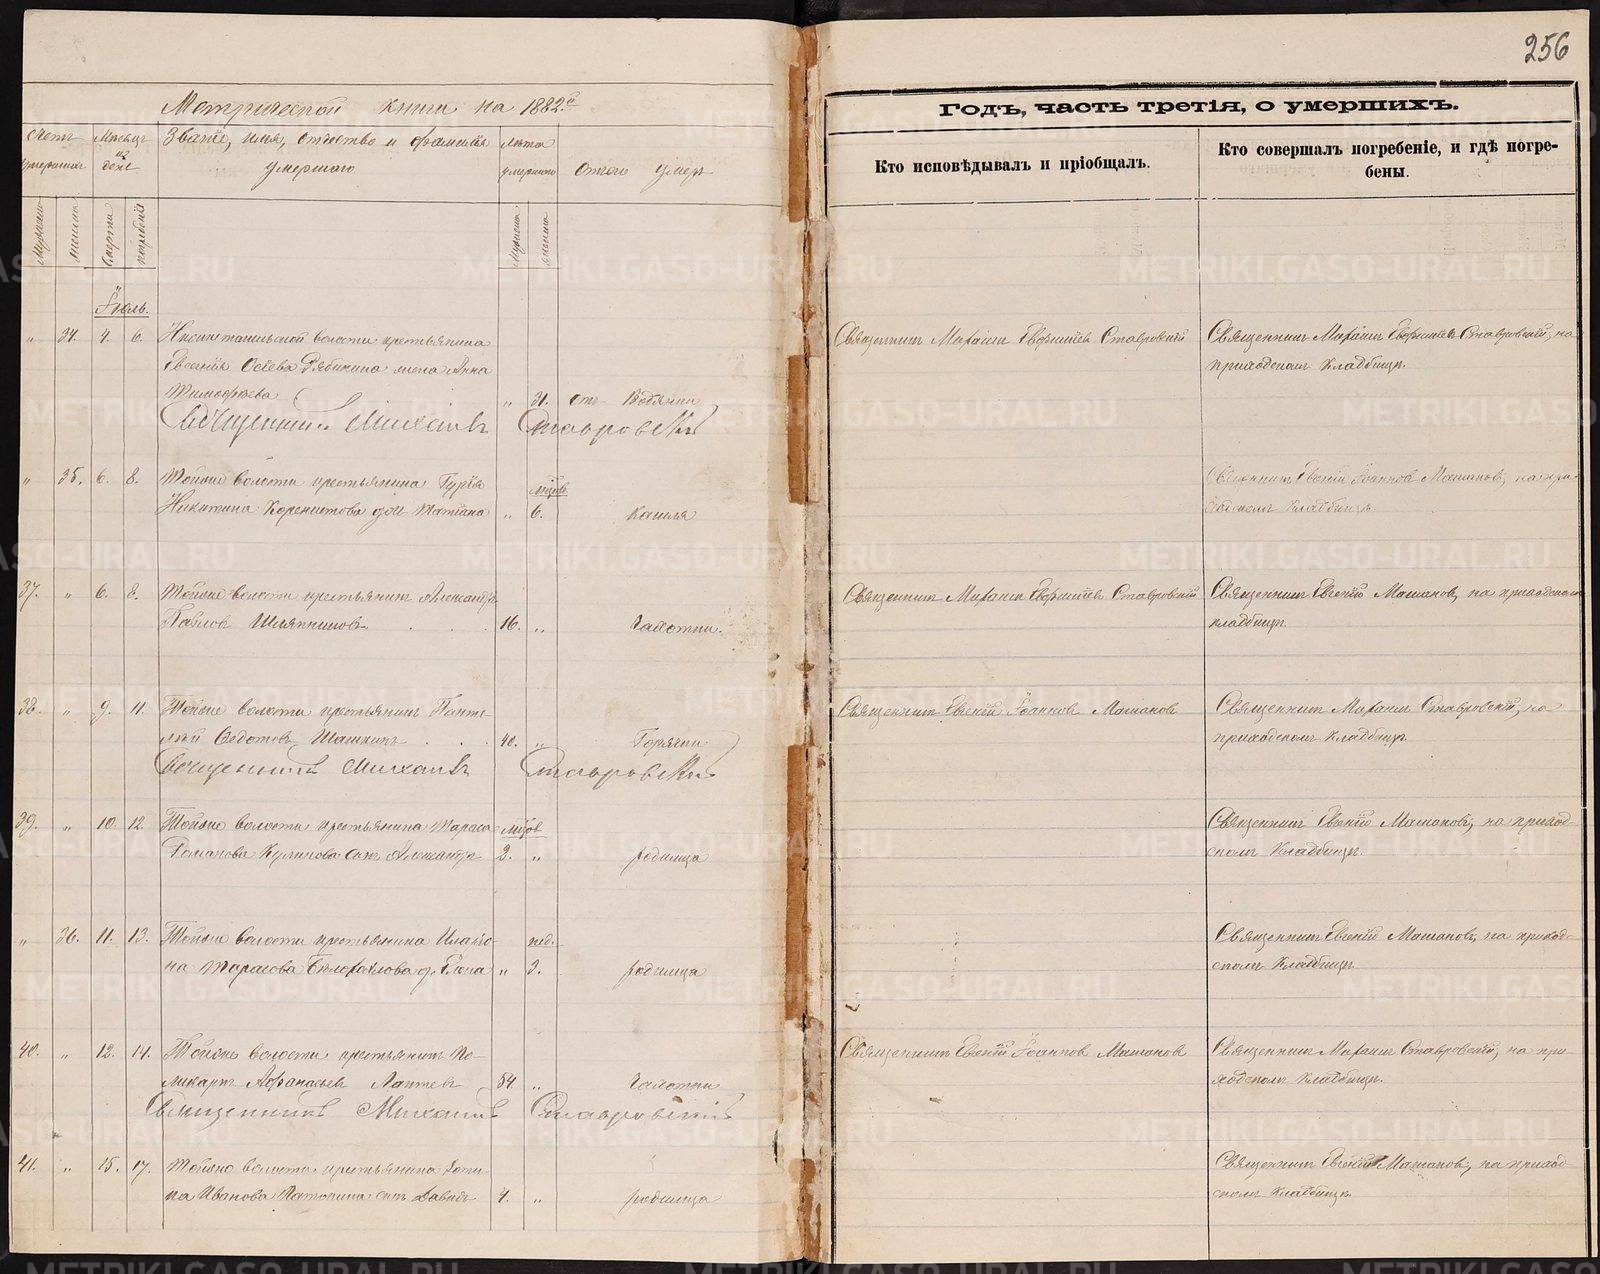 256
Метрической книги на 1882й
Годъ, часть третія, о умершихъ.
Счетъ умершихъ
Мѣсяцъ и день
Званіе, имя, отчество и фамилія
умершаго
Лѣта умершаго
Отчего умеръ
Кто исповѣдывалъ и пріобщалъ.
Кто совершалъ погребеніе, и гдѣ погре-
бены.
Мужеска женска Смерти погребенія Мужеска женска
Іюль.
" 34. 4. 6. волости крестьянина
жена Анна
Тимофѣева " 31. отъ Водянки
Священникъ Михаилъ Ставровскій
Священникъ Михаилъ Ставровскій
Священникъ Михаилъ Ставровскій, на
приходскомъ кладбищѣ.
" 35. 6. 8. Тойже волости крестьянина Гурія мѣсяц.
Никитина дочь Татіана " 6. Кашля
Священникъ Евгеній Іоанновъ Машановъ, на при-
ходскомъ кладбищѣ.
37. " 6. 8. Тойже волости крестьянинъ Александръ
Павловъ Шляпниковъ 16. " Чахотки.
Священникъ Михаилъ Ставровскій
Священникъ Евгеній Машановъ, на приходскомъ
кладбищѣ.
38. " 9. 11. Тойже волости крестьянинъ Панте-
лей Ѳедотовъ Шашкинъ 40. " Горячки
Священникъ Михаилъ Ставровскій
Священникъ Евгеній Іоанновъ Машановъ
Священникъ Михаилъ Ставровскій, на
приходскомъ кладбищѣ.
39. " 10. 12. Тойже волости крестьянина Тараса мѣсяцов
Романова Куликова сынъ Александръ 2. " родимца
Священникъ Евгеній Машановъ, на приход-
скомъ кладбищѣ.
" 36. 11. 13. Тойже волости крестьянина Иларіо- нед.
на Тарасова д. Елена " 3. родимца
Священникъ Евгеній Машановъ, на приход-
скомъ кладбищѣ.
40. " 12. 14. Тойже волости крестьянинъ По-
ликарпъ Афанасьевъ Лаптевъ 54. " Чахотки
Священникъ Михаилъ Ставровскій
Священникъ Евгеній Іоанновъ Машановъ
Священникъ Михаилъ Ставровскій, на при-
ходскомъ кладбищѣ.
41. " 15. 17. Тойже волости крестьянина
Иванова сынъ Давидъ 4. " родимца
Священникъ Евгеній Машановъ, на приход-
скомъ кладбищѣ.
METRIKI.GASO-URAL.RU